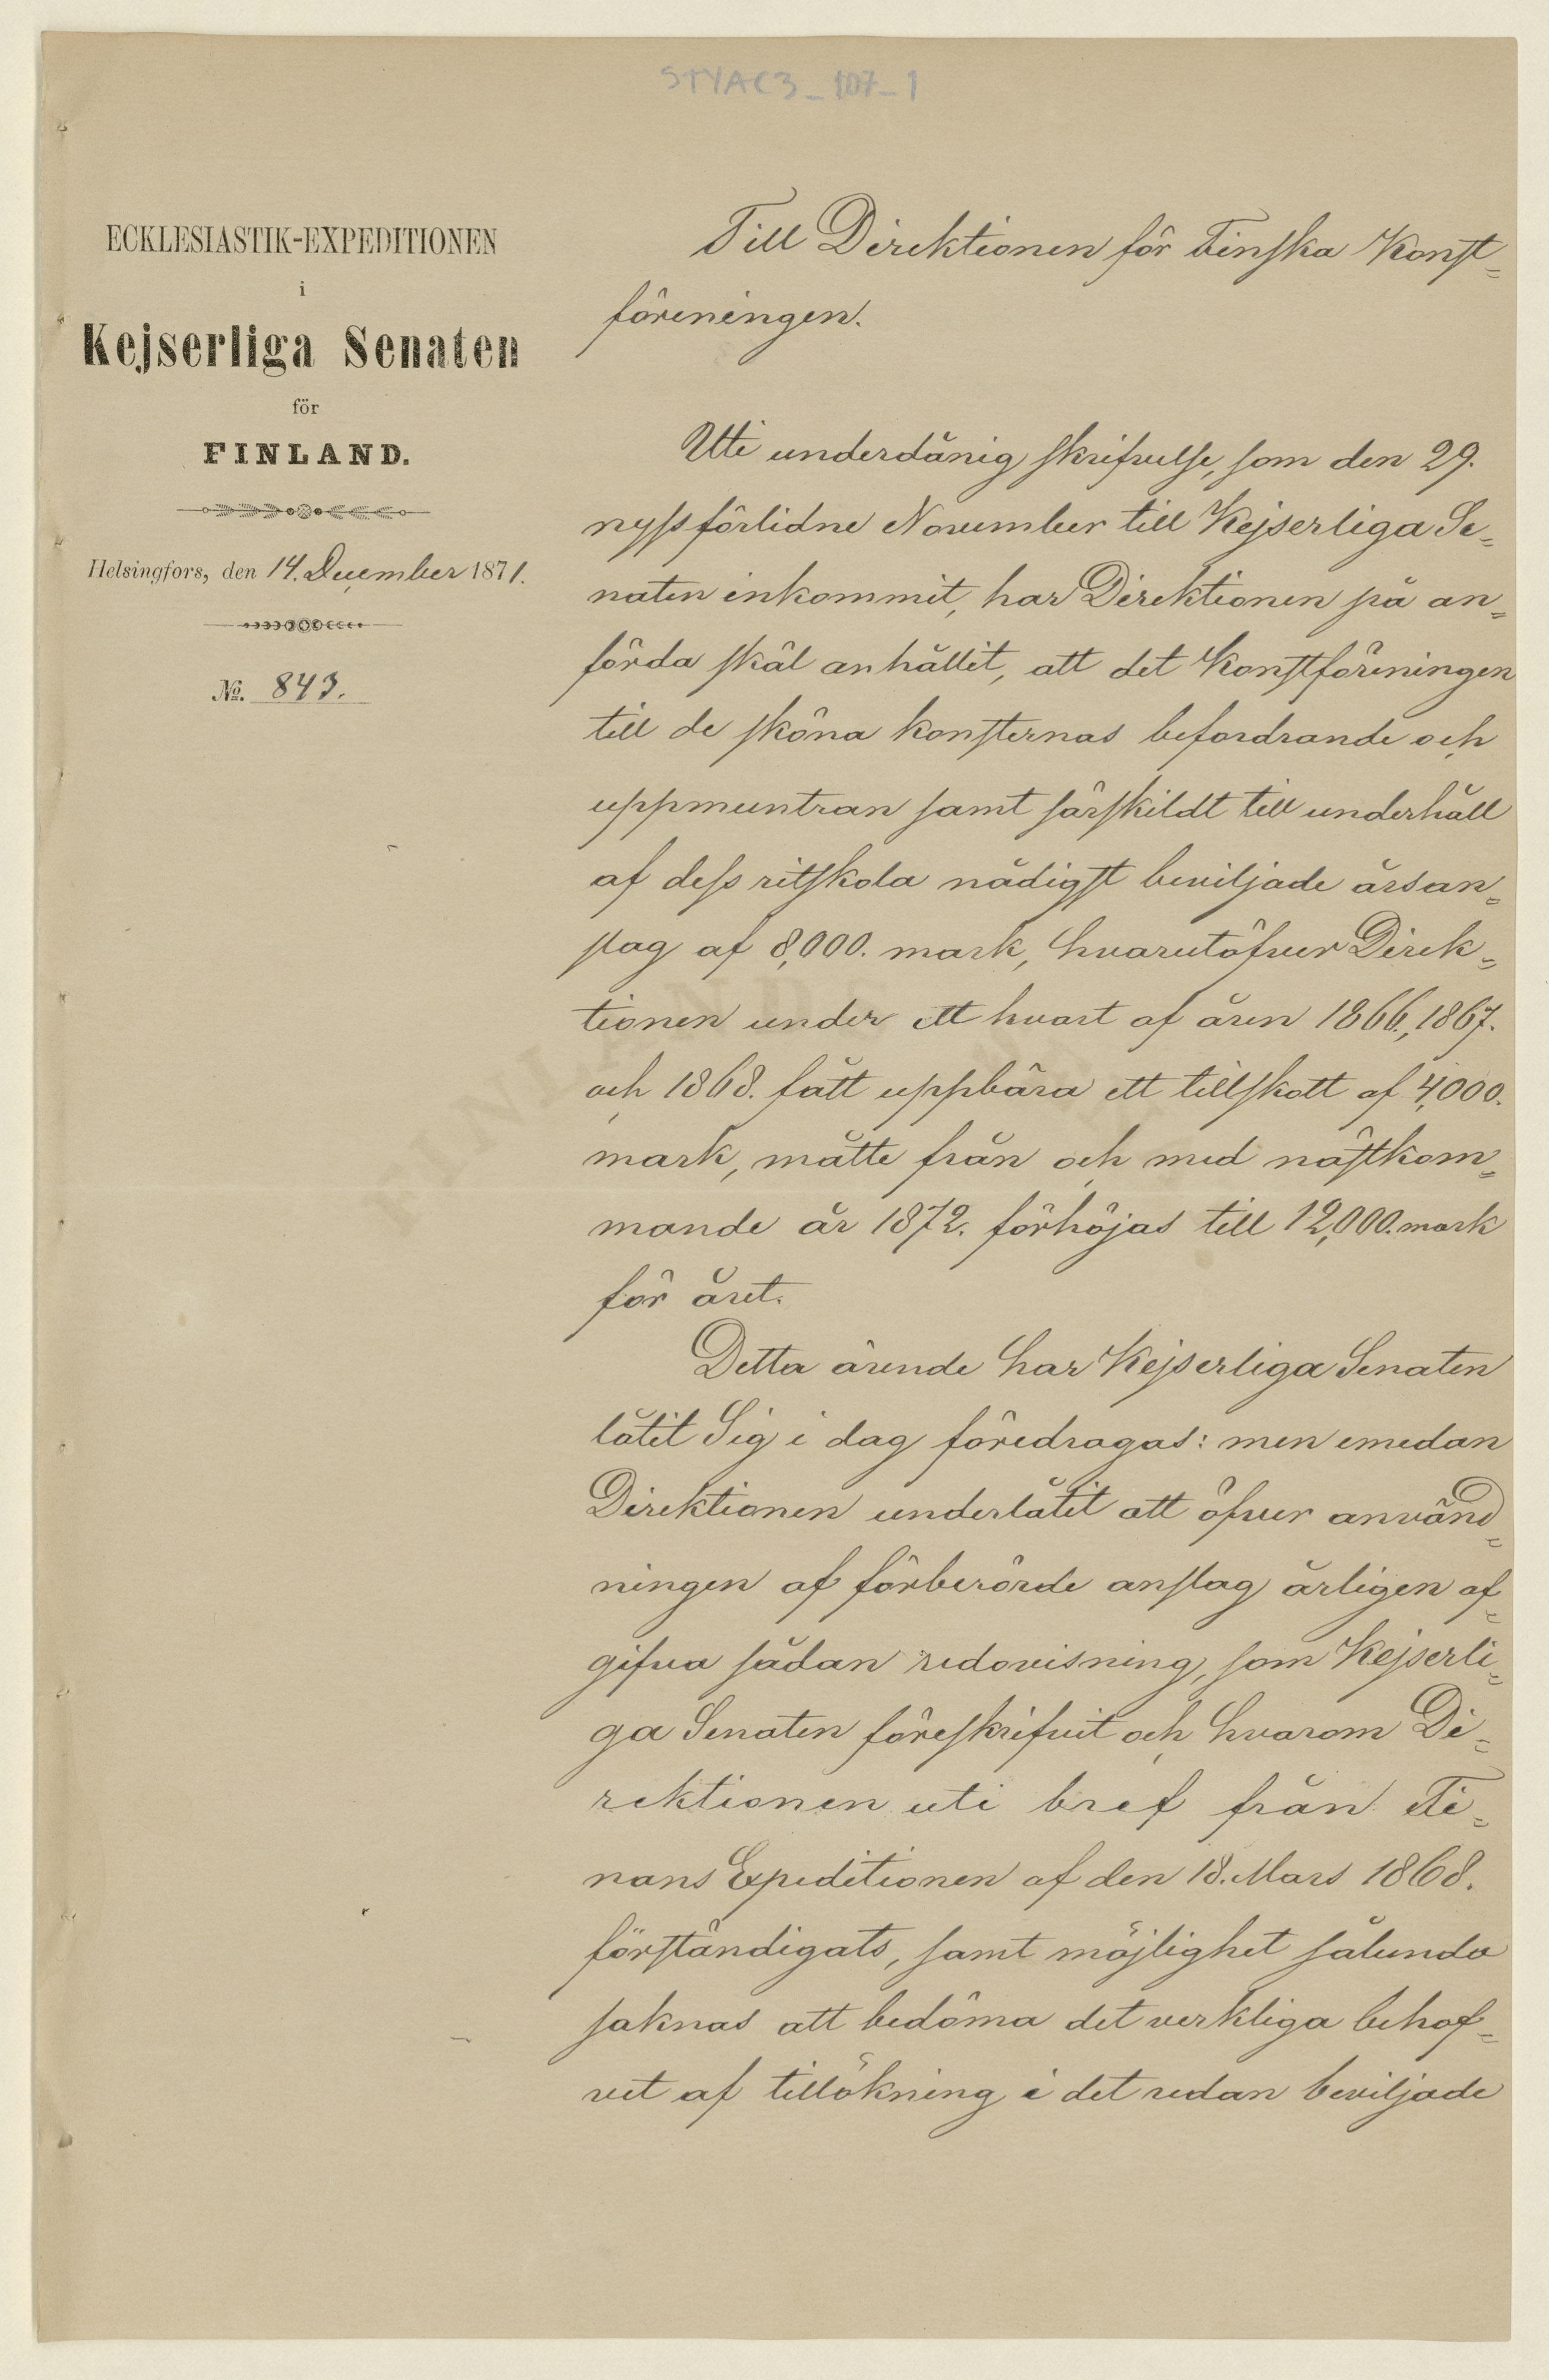 STYAC3_107_1
ECKLESIASTIK-EXPEDITIONEN
i
Kejserliga Senaten
för
FINLAND.
Helsingfors, den 14. December 1871.
No. 843.
Till Direktionen för Finska Konst=
föreningen.
Uti underdånig skrifvelse, som den 29.
nyssförlidne November till Kejserliga Se=
naten inkommit, har Direktionen på an=
förda skäl anhållit, att det Konstföreningen
till de sköna konsternas befordrande och
uppmuntran samt särskildt till underhåll
af dess ritskola nådigst beviljade årsan=
slag af 8,000. mark, hvarutöfver Direk=
tionen under ett hvart af åren 1866., 1867.
och 1868. fått uppbära ett tillskott af 4,000.
mark, måtte från och med nästkom=
mande år 1872. förhöjas till 12,000. mark
för året.
Detta ärende har Kejserliga Senaten
låtit Sig i dag föredragas: men emedan
Direktionen underlåtit att öfver använd=
ningen af förberörde anslag årligen af=
gifva sådan redovisning, som Kejserli=
ga Senaten föreskrifvit och hvarom Di=
rektionen uti bref från Fi=
nans Expeditionen af den 18. Mars 1868.
förständigats, samt möjlighet sålunda
saknas att bedöma det verkliga behof=
vet af tillökning i det redan beviljade